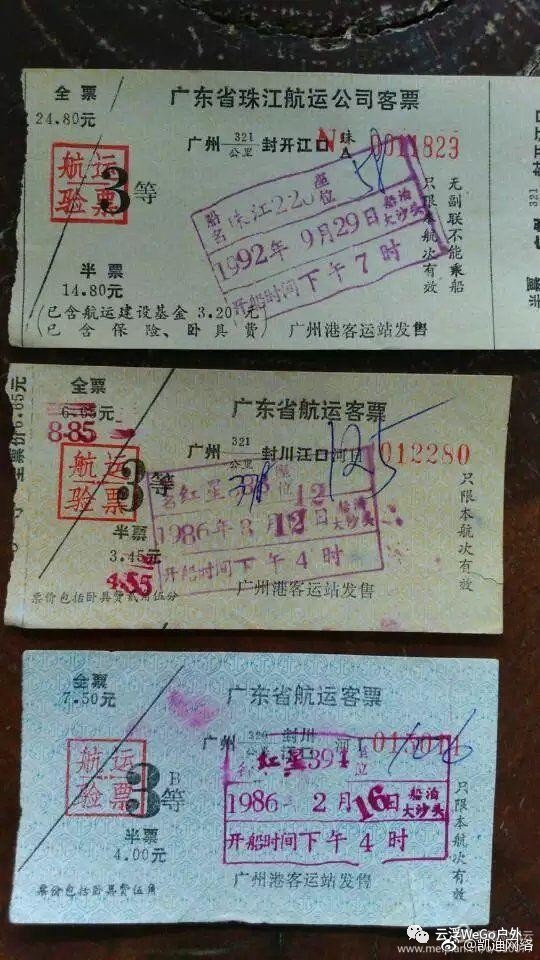 全票
24.80元
广东省珠江航运公司客票
广州 321公里 封开江口
N 珠A 0011823
航运
验票
3等
58
船名 珠江220 座位
1992年9月29日 船泊大沙头
开船时间下午7时
无副联不能乘船
只限本航次有效
半票
14.80元
(已含航运建设基金 3.20元)
已含保险、卧具费
广州港客运站发售
321
全票
6.65元
8.85
全票价6.65元
广东省航运客票
广州 321公里 封川江口
125
012280
航运
验票
3等
红星 座位 12
1986年3月12日 船泊大沙头
开船时间下午4时
只限本航次有效
半票
3.45元
4.55
票价包括卧具费贰角伍分
广州港客运站发售
全票
7.50元
广东省航运客票
广州 320公里 封川江口
航运
验票
3B等
红星391
1986年2月16日 船泊大沙头
开船时间下午4时
只限本航次有效
半票
4.00元
票价包括卧具费伍角
广州港客运站发售
云浮WeGo户外
@凯迪网络